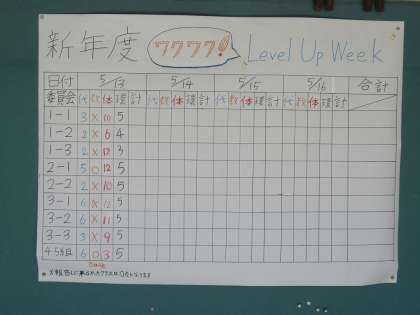 新年度 ワクワク!! Level Up Week
日付 5/13 5/14 5/15 5/16 合計
委員会 代 教 体 環 計 代 教 体 環 計 代 教 体 環 計 代 教 体 環 計
1-1 3 × 10 5
1-2 2 × 6 4
1-3 2 × 12 3
2-1 5 ○ 12 5
2-2 2 × 10 5
3-1 6 × 12 5
3-2 6 × 11 5
3-3 3 × 9 5
4・5組 6 ○ 3 5